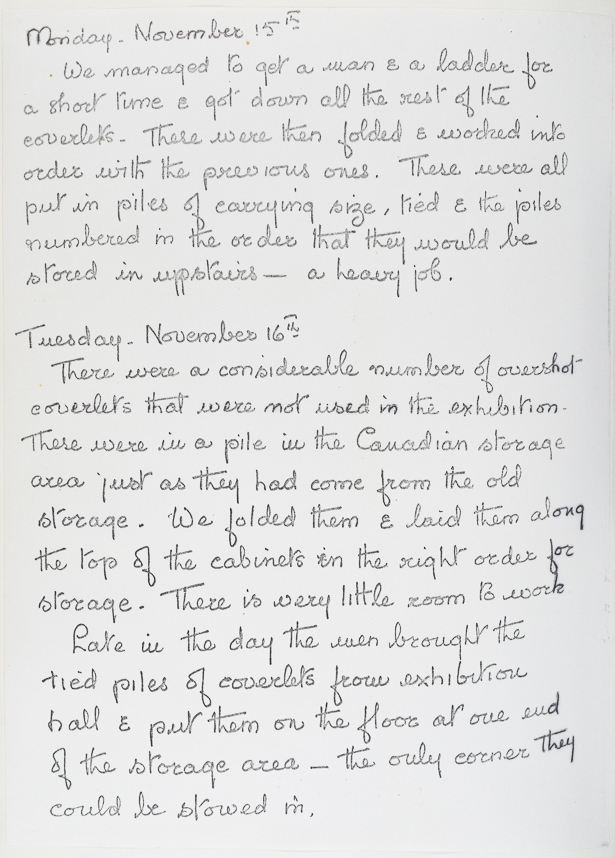 Monday - November 15th
We managed to get a man & a ladder for
a short time & got down all the rest of the
coverlets - These were then folded & worked into
order with the previous ones. These were all
put in piles of carrying size, tied & the piles
numbered in the order that they would be
stored in upstairs — a heavy job.
Tuesday - November 16th
There were a considerable number of overshot
coverlets that were not used in the exhibition -
These were in a pile in the Canadian storage
area just as they had come from the old
storage. We folded them & laid them along
the top of the cabinets in the right order for
storage. There is very little room to work
Late in the day the men brought the
tied piles of coverlets from exhibition
hall & put them on the floor at one end
of the storage area — the only corner they
could be stowed in.